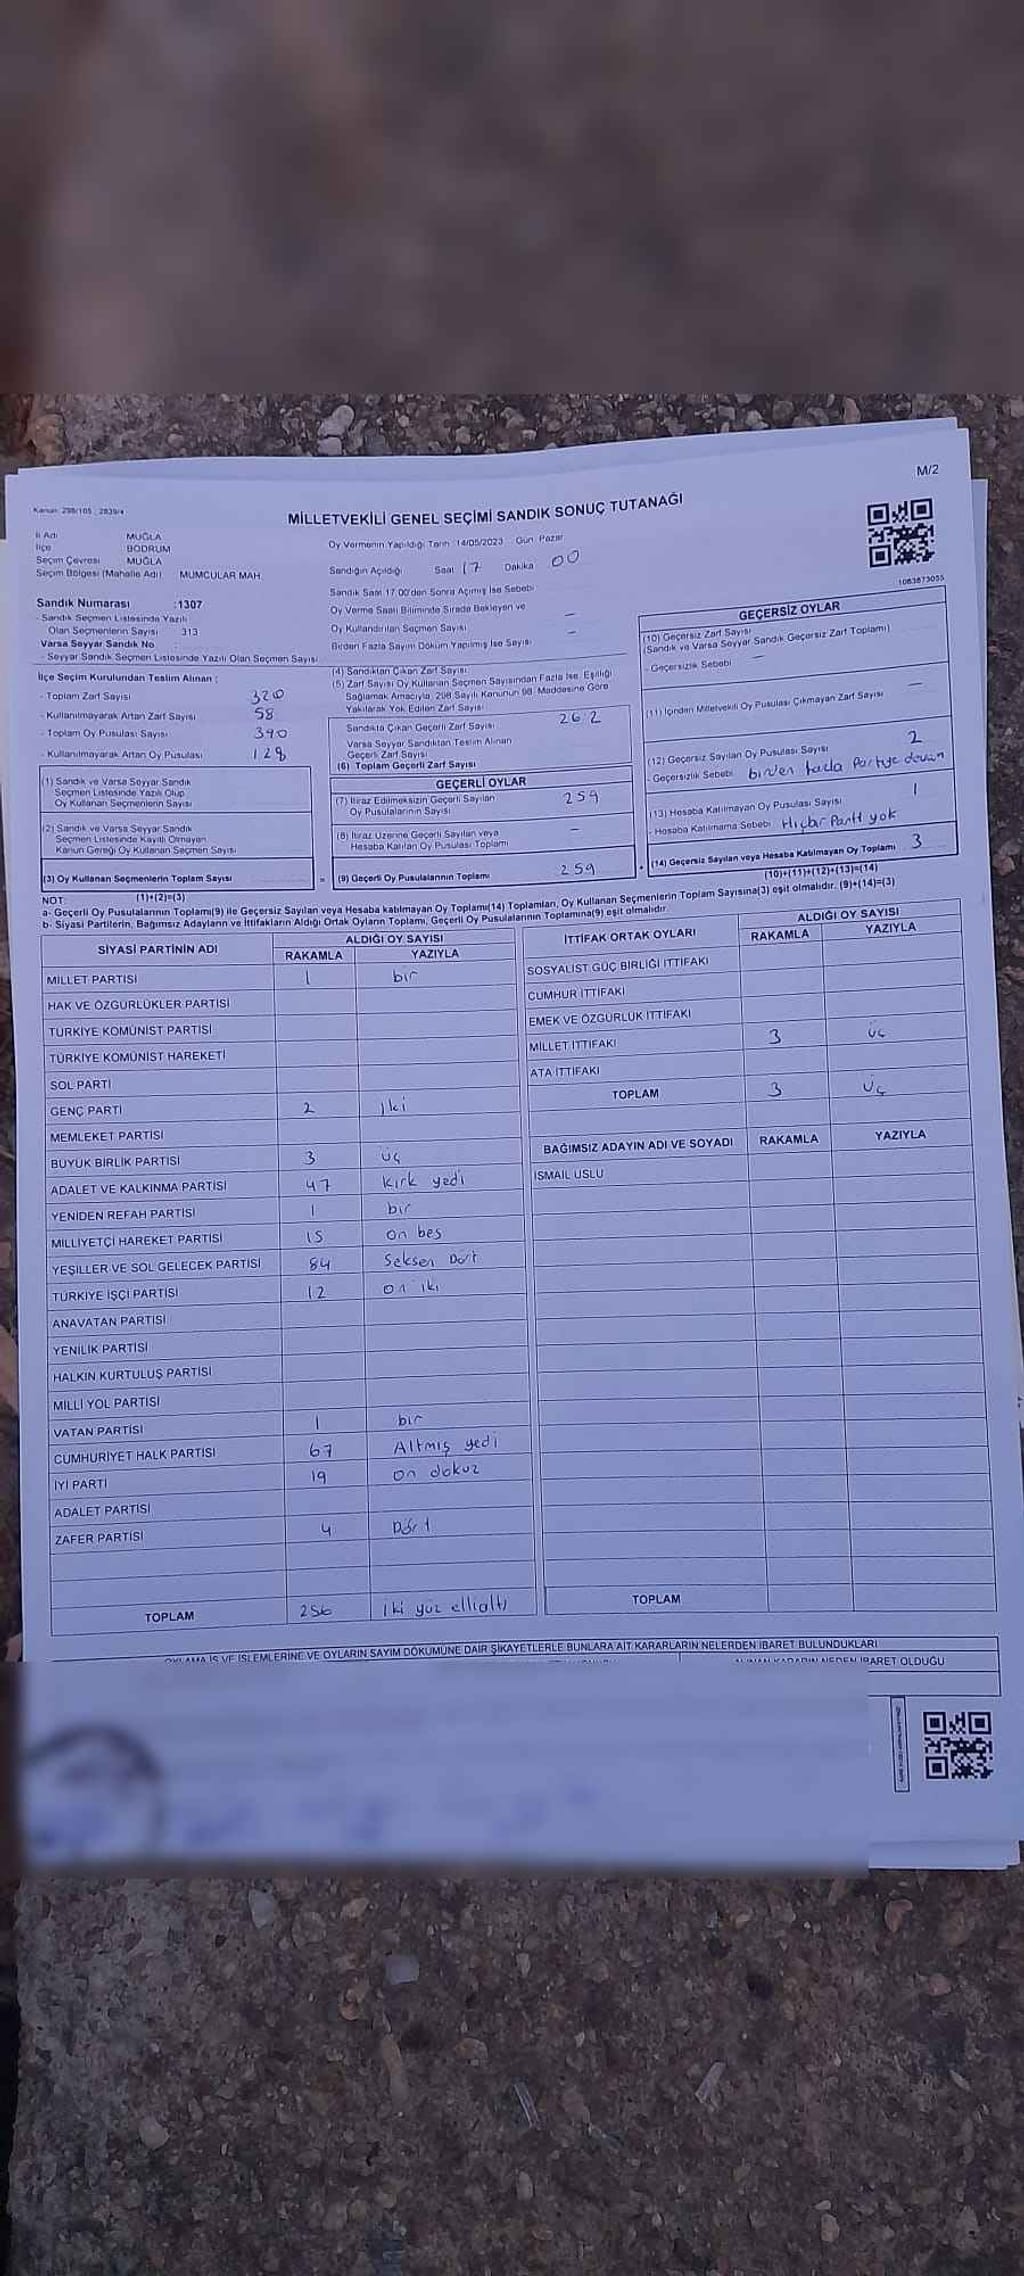 M/2
Kanun: 298/105 2839/4
MİLLETVEKİLİ GENEL SEÇİMİ SANDIK SONUÇ TUTANAĞI
İl Adı MUĞLA
İlçe BODRUM
Seçim Çevresi MUĞLA
Seçim Bölgesi (Mahalle Adı) MUMCULAR MAH.
Sandık Numarası :1307
- Sandık Seçmen Listesinde Yazılı
Olan Seçmenlerin Sayısı 313
Varsa Seyyar Sandık No
- Seyyar Sandık Seçmen Listesinde Yazılı Olan Seçmen Sayısı
Oy Vermenin Yapıldığı Tarih :14/05/2023 Gün: Pazar
Sandığın Açıldığı Saat 17 Dakika 00
Sandık Saat 17.00'den Sonra Açılmış İse Sebebi
Oy Verme Saati Bitiminde Sırada Bekleyen ve
Oy Kullandırılan Seçmen Sayısı —
Birden Fazla Sayım Döküm Yapılmış İse Sayısı —
1083873055
İlçe Seçim Kurulundan Teslim Alınan :
- Toplam Zarf Sayısı 320
- Kullanılmayarak Artan Zarf Sayısı 58
- Toplam Oy Pusulası Sayısı 390
- Kullanılmayarak Artan Oy Pusulası 128
(1) Sandık ve Varsa Seyyar Sandık
Seçmen Listesinde Yazılı Olup
Oy Kullanan Seçmenlerin Sayısı
(2) Sandık ve Varsa Seyyar Sandık
Seçmen Listesinde Kayıtlı Olmayan
Kanun Gereği Oy Kullanan Seçmen Sayısı
(3) Oy Kullanan Seçmenlerin Toplam Sayısı
(1)+(2)=(3)
(4) Sandıktan Çıkan Zarf Sayısı
(5) Zarf Sayısı Oy Kullanan Seçmen Sayısından Fazla İse, Eşitliği
Sağlamak Amacıyla, 298 Sayılı Kanunun 98. Maddesine Göre
Yakılarak Yok Edilen Zarf Sayısı
Sandıkta Çıkan Geçerli Zarf Sayısı 262
Varsa Seyyar Sandıktan Teslim Alınan
Geçerli Zarf Sayısı
(6) Toplam Geçerli Zarf Sayısı
GEÇERLİ OYLAR
(7) İtiraz Edilmeksizin Geçerli Sayılan
Oy Pusulalarının Sayısı 259
(8) İtiraz Üzerine Geçerli Sayılan veya
Hesaba Katılan Oy Pusulası Toplamı —
= (9) Geçerli Oy Pusulalarının Toplamı 259 +
GEÇERSİZ OYLAR
(10) Geçersiz Zarf Sayısı
(Sandık ve Varsa Seyyar Sandık Geçersiz Zarf Toplamı)
- Geçersizlik Sebebi —
(11) İçinden Milletvekili Oy Pusulası Çıkmayan Zarf Sayısı —
(12) Geçersiz Sayılan Oy Pusulası Sayısı 2
- Geçersizlik Sebebi birden fazla Partiye
(13) Hesaba Katılmayan Oy Pusulası Sayısı 1
- Hesaba Katılmama Sebebi Hiçbir Parti yok
(14) Geçersiz Sayılan veya Hesaba Katılmayan Oy Toplamı 3
(10)+(11)+(12)+(13)=(14)
NOT:
a- Geçerli Oy Pusulalarının Toplamı(9) ile Geçersiz Sayılan veya Hesaba katılmayan Oy Toplamı(14) Toplamları, Oy Kullanan Seçmenlerin Toplam Sayısına(3) eşit olmalıdır. (9)+(14)=(3)
b- Siyasi Partilerin, Bağımsız Adayların ve İttifakların Aldığı Ortak Oyların Toplamı, Geçerli Oy Pusulalarının Toplamına(9) eşit olmalıdır.
SİYASİ PARTİNİN ADI ALDIĞI OY SAYISI
RAKAMLA YAZIYLA
MİLLET PARTİSİ 1 bir
HAK VE ÖZGÜRLÜKLER PARTİSİ
TÜRKİYE KOMÜNİST PARTİSİ
TÜRKİYE KOMÜNİST HAREKETİ
SOL PARTİ
GENÇ PARTİ 2 iki
MEMLEKET PARTİSİ
BÜYÜK BİRLİK PARTİSİ 3 üç
ADALET VE KALKINMA PARTİSİ 47 kırk yedi
YENİDEN REFAH PARTİSİ 1 bir
MİLLİYETÇİ HAREKET PARTİSİ 15 on beş
YEŞİLLER VE SOL GELECEK PARTİSİ 84 Seksen Dört
TÜRKİYE İŞÇİ PARTİSİ 12 on iki
ANAVATAN PARTİSİ
YENİLİK PARTİSİ
HALKIN KURTULUŞ PARTİSİ
MİLLİ YOL PARTİSİ
VATAN PARTİSİ 1 bir
CUMHURİYET HALK PARTİSİ 67 Altmış yedi
İYİ PARTİ 19 on dokuz
ADALET PARTİSİ
ZAFER PARTİSİ 4 Dört
TOPLAM 256 iki yüz ellialtı
İTTİFAK ORTAK OYLARI ALDIĞI OY SAYISI
RAKAMLA YAZIYLA
SOSYALİST GÜÇ BİRLİĞİ İTTİFAKI
CUMHUR İTTİFAKI
EMEK VE ÖZGÜRLÜK İTTİFAKI
MİLLET İTTİFAKI 3 üç
ATA İTTİFAKI
TOPLAM 3 üç
BAĞIMSIZ ADAYIN ADI VE SOYADI RAKAMLA YAZIYLA
İSMAİL USLU
TOPLAM
OYLAMA İŞ VE İŞLEMLERİNE VE OYLARIN SAYIM DÖKÜMÜNE DAİR ŞİKAYETLERLE BUNLARA AİT KARARLARIN NELERDEN İBARET BULUNDUKLARI
ALINAN KARARIN NEDEN İBARET OLDUĞU